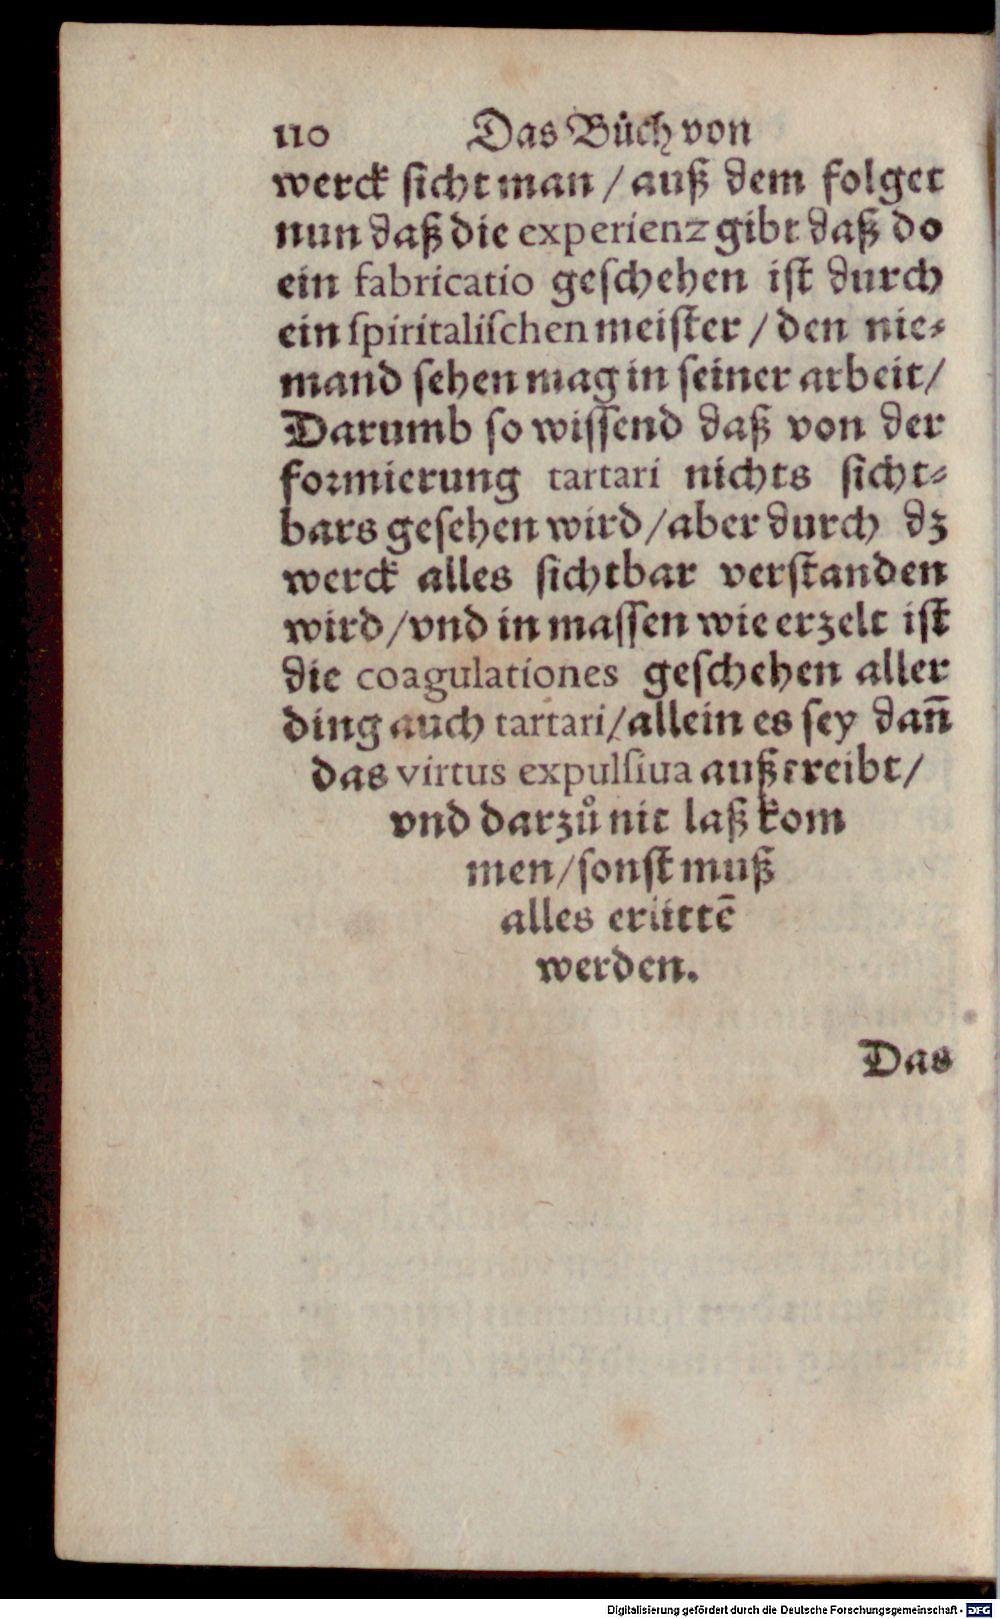 110 Das Bůch von
werck sicht man / auß dem folget
nun daß die experienz gibt daß do
ein fabricatio geschehen ist durch
ein spiritalischen meister / den nie⸗
mand sehen mag in seiner arbeit /
Darumb so wissend daß von der
formierung tartari nichts sicht⸗
bars gesehen wird / aber durch dz
werck alles sichtbar verstanden
wird / vnd in massen wie erzelt ist
die coagulationes geschehen aller
ding auch tartari / allein es sey dañ
das virtus expulsiua außtreibt /
vnd darzů nit laß kom
men / sonst muß
alles erlittē
werden.
Das
Digitalisierung gefördert durch die Deutsche Forschungsgemeinschaft - DFG